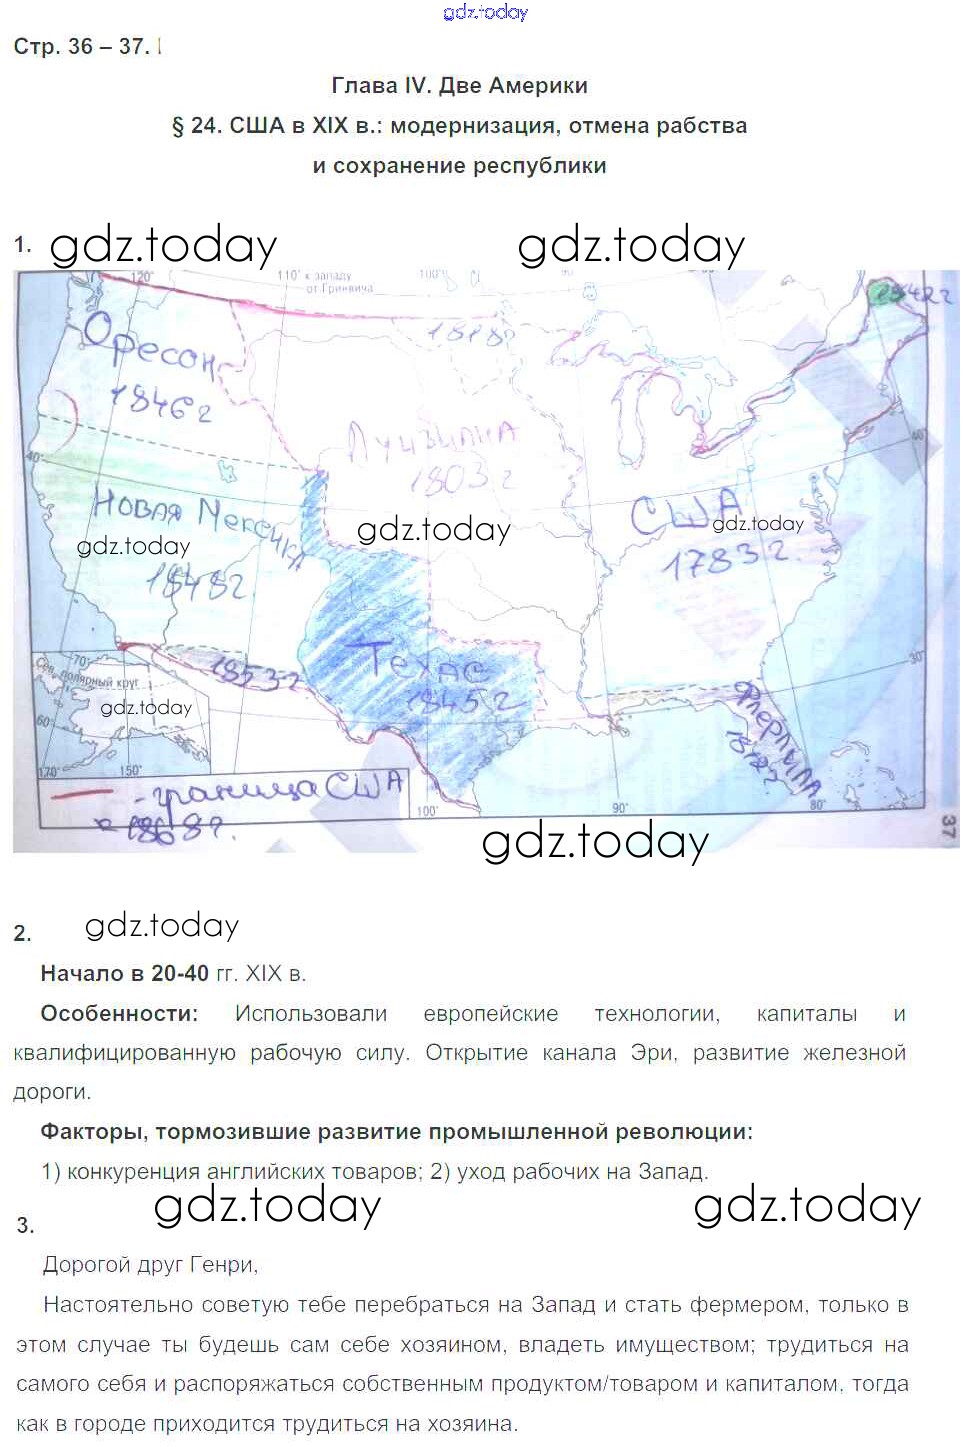 gdz.today
Стр. 36 – 37.
Глава IV. Две Америки
§ 24. США в XIX в.: модернизация, отмена рабства
и сохранение республики
1.
gdz.today gdz.today
120° 110° к западу 100° 90
от Гринвича
1842г
Орегон
1846г
1818г
Луизиана
1803г
40° 40°
Новая Мексика
1848г
США
1783г.
gdz.today gdz.today gdz.today
Техас
1845г
1853г
30°
Сев. полярный круг
70°
gdz.today
60°
170° 150°
Флорида
- граница США
к 1868г.
100° 90° 80°
37
gdz.today
2.
gdz.today
Начало в 20-40 гг. XIX в.
Особенности: Использовали европейские технологии, капиталы и
квалифицированную рабочую силу. Открытие канала Эри, развитие железной
дороги.
Факторы, тормозившие развитие промышленной революции:
1) конкуренция английских товаров; 2) уход рабочих на Запад.
gdz.today gdz.today
3.
Дорогой друг Генри,
Настоятельно советую тебе перебраться на Запад и стать фермером, только в
этом случае ты будешь сам себе хозяином, владеть имуществом; трудиться на
самого себя и распоряжаться собственным продуктом/товаром и капиталом, тогда
как в городе приходится трудиться на хозяина.